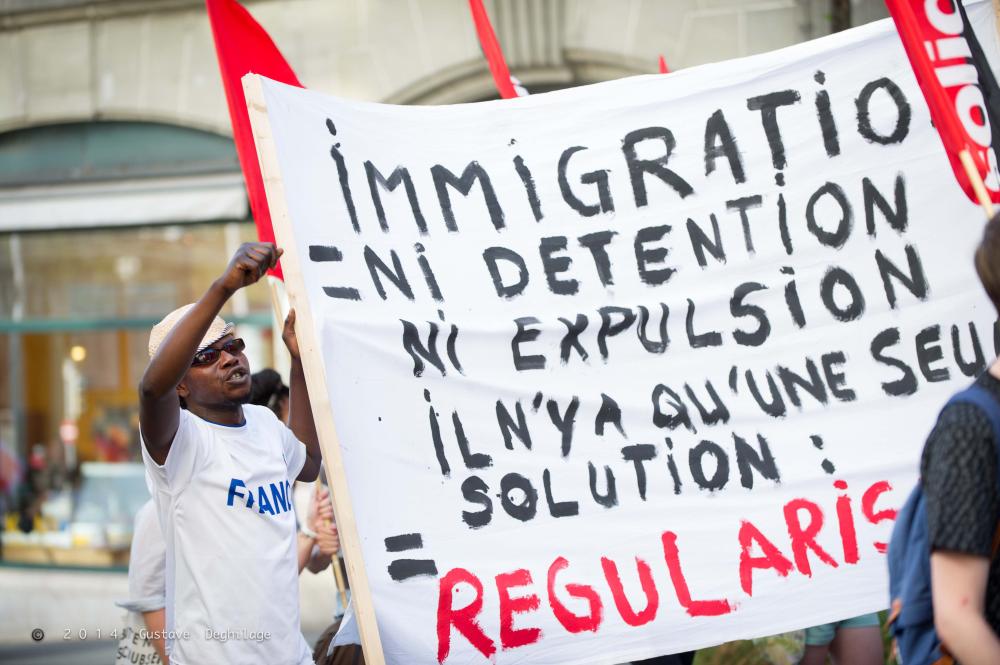 iMMiGRATiO
= Ni DETENTiON
Ni EXPULSiON
iL N'Y A QU'UNE SEU
SOLUTiON :
= REGULARiS
FRANC
solid
© 2014 Gustave Deghilage